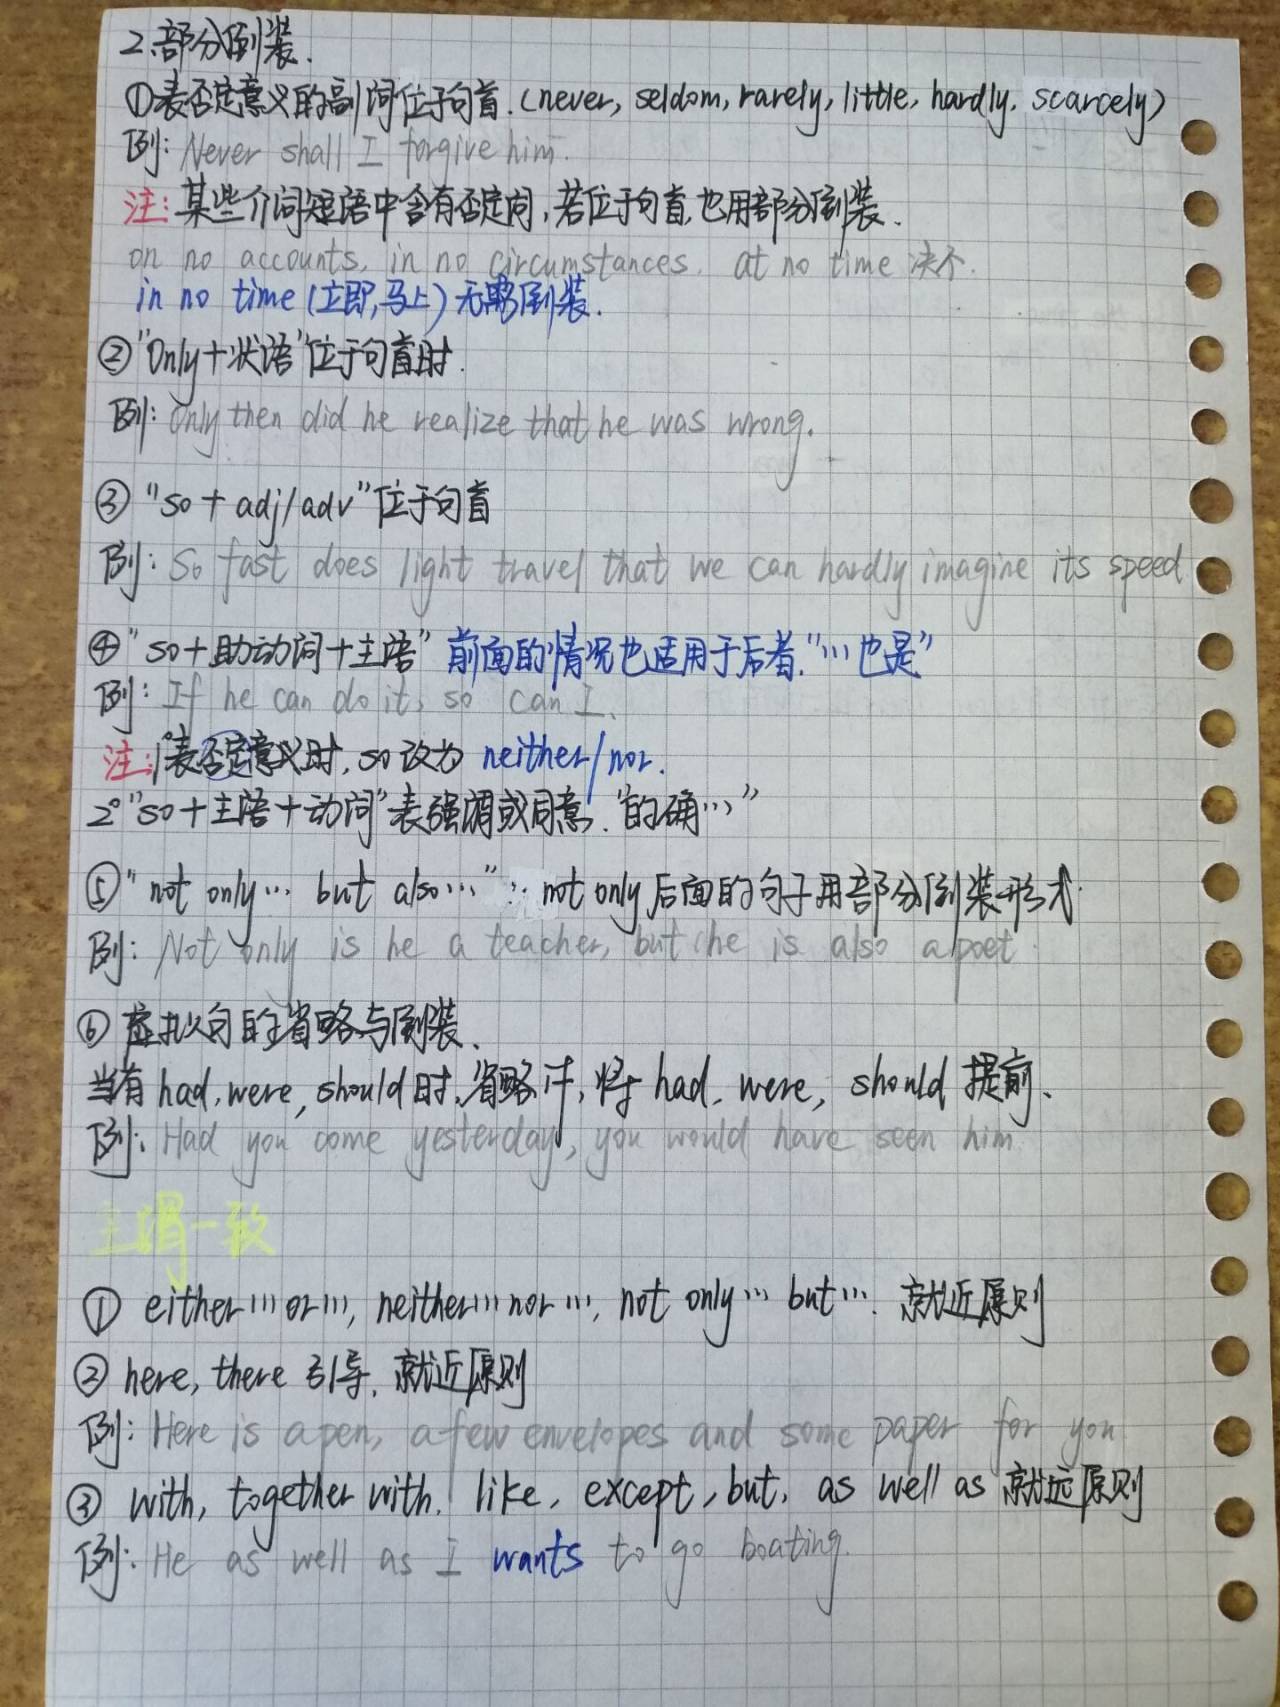 2.部分倒装.
①表否定意义的副词位于句首.(never, seldom, rarely, little, hardly, scarcely)
例: Never shall I forgive him.
注:某些介词短语中含有否定词,若位于句首,也用部分倒装.
on no accounts, in no circumstances. at no time 决不.
in no time (立即,马上) 无需倒装.
②"Only+状语"位于句首时.
例: Only then did he realize that he was wrong.
③ "so + adj/adv"位于句首
例: So fast does light travel that we can hardly imagine its speed
④ "so+助动词+主语" 前面的情况也适用于后者."…也是"
例: If he can do it, so can I.
注:1°表否定意义时, so改为 neither/nor.
2°"so+主语+动词"表强调或同意."的确…"
⑤"not only… but also…": not only 后面的句子用部分倒装形式.
例: Not only is he a teacher, but he is also a poet.
⑥ 虚拟句的省略与倒装.
当有 had, were, should时,省略if,将 had, were, should 提前.
例: Had you come yesterday, you would have seen him.
主谓一致
① either…or…, neither…nor…, not only… but…. 就近原则
② here, there 引导, 就近原则
例: Here is a pen, a few envelopes and some paper for you
③ with, together with, like, except, but, as well as 就远原则
例: He as well as I wants to go boating.